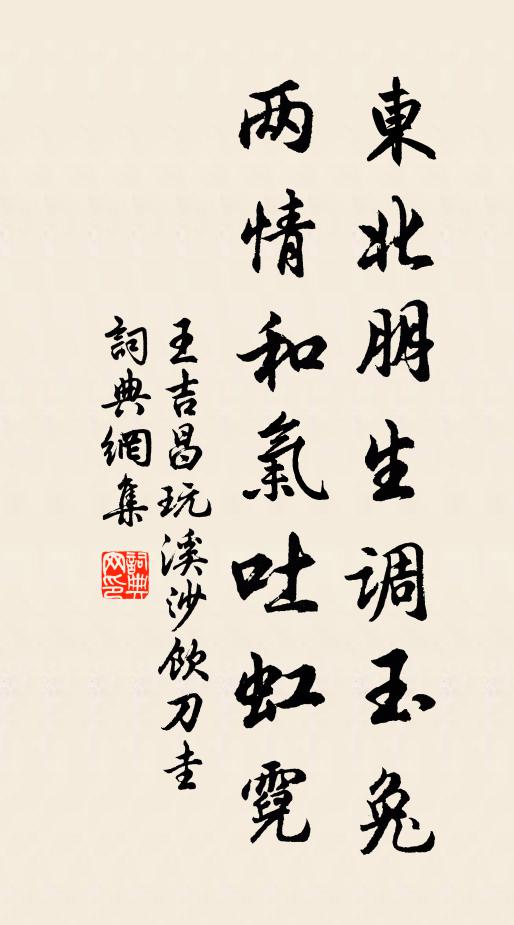 東北朋生调玉兔
两情和氣吐虹霓
王吉昌玩溪沙飲刀圭
詞典網集
詞典網印